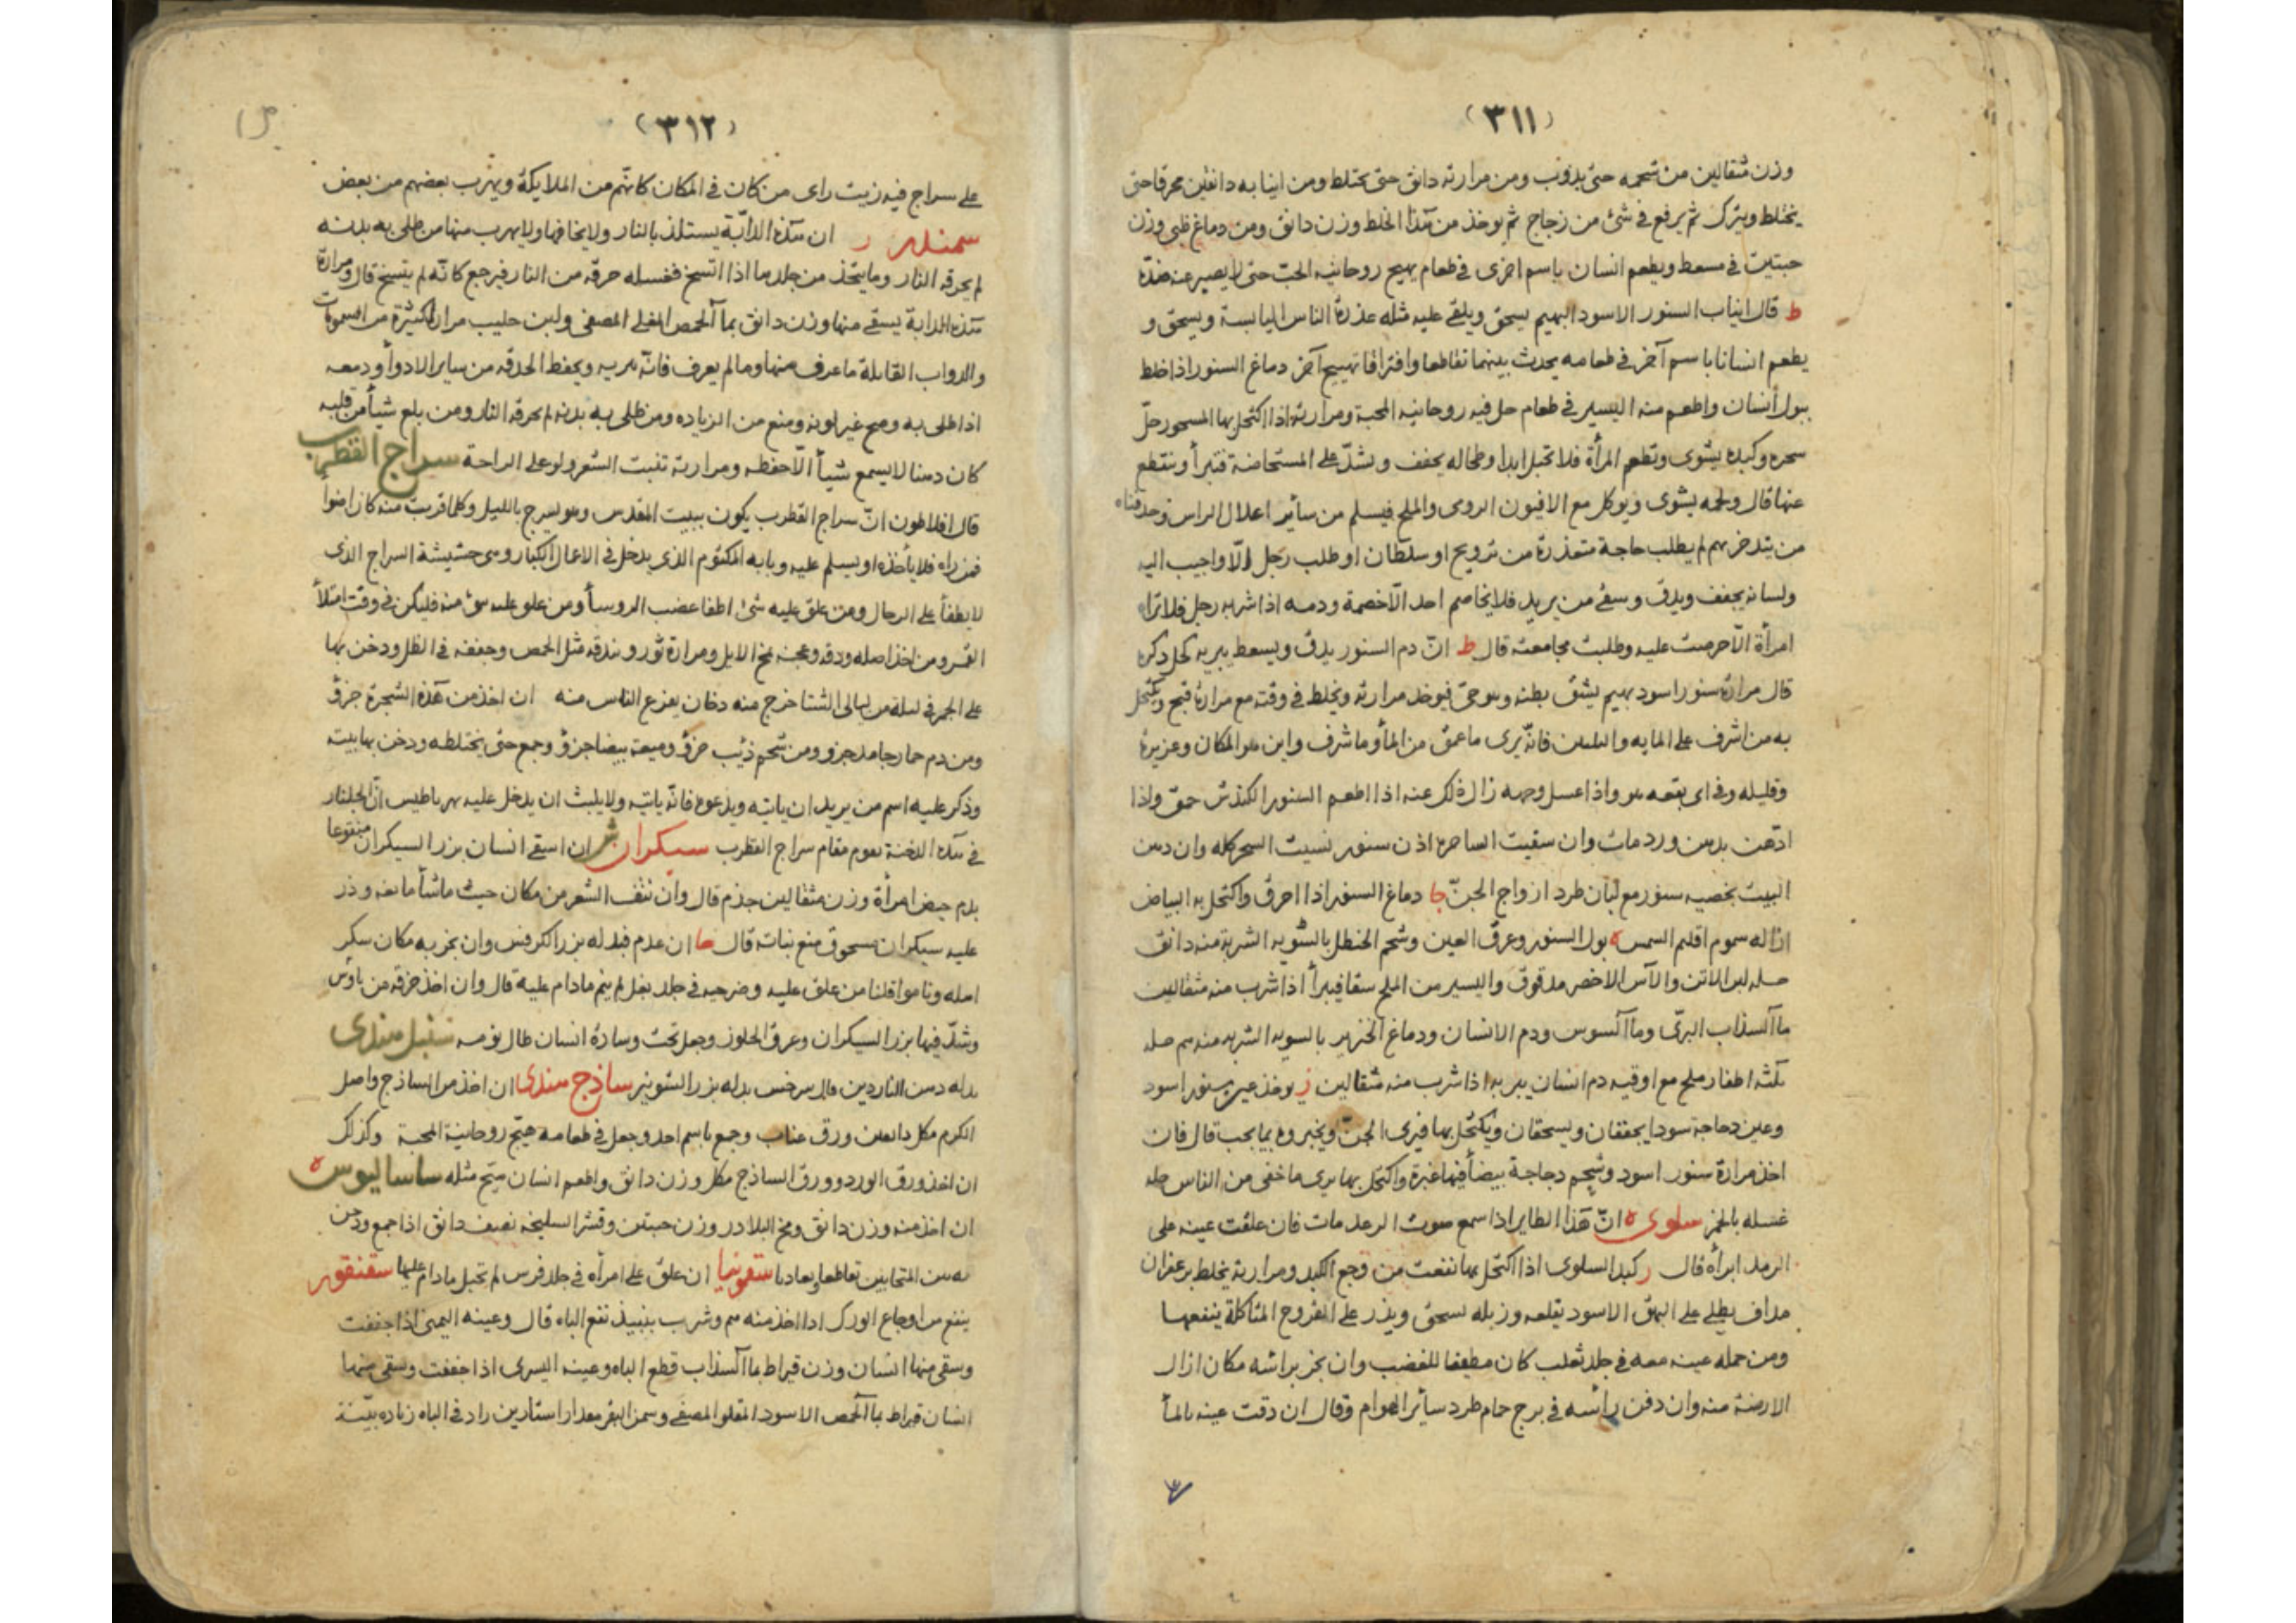 (٣١١)
وزن مثقالين من شحمه حتى يذوب ومن مرارته دانق حتى يختلط ومن انيابه دانقين محرقا حتى
يختلط ويترك ثم يرفع فى شئ من زجاج ثم يوخذ من هذا الخلط وزن دانق ومن دماغ ظبى وزن
حبتين فى مسعط ويطعم انسان باسم اخرى فى طعام يهيج روحانيه الحب حتى لا يصير عنه ضده
ط قال انياب السنور الاسود البهيم يسحق ويلقى عليه مثله عذرة الناس اليابسة ويسحق و
يطعم انسانا باسم آخر فى طعامه يحدث بينهما تقاطعا وافتراقا تهييج آخر دماغ السنور اذا خلط
ببول انسان واطعم منه اليسير فى طعام حل فيه روحانيه المحبة ومرارته اذا اكتحل بها المسحور حل
سحره وكبده يشوى وتطعم المرأة فلا تحبل ابدا وطحاله يجفف ويشد على المستحاضة فتبرأ وينقطع
عنها قال ولحمه يشوى ويوكل مع الافيون الرومى والملح فيسلم من سائر اعلال الراس وحدقتاه
من يتدخر بهم لم يطلب حاجة متعذرة من تزويج او سلطان او طلب رجل الا واجيب اليه
ولسانه يجفف ويدق وسقى من يريد فلا يخاصم احد الا خصمه ودمه اذا شربه رجل فلا تراه
امرأة الا حرصت عليه وطلبت مجامعته قال ط ان دم السنور يدق ويسعط يبريه كحل ذكره
قال مرارة سنور اسود بهيم يشق بطنه وهو حى فيوخذ مرارته ويخلط فى وقته مع مرارة قبج ويكتحل
به من اشرف على المابه فانه يرى ما عمق من المأ وما شرف واين هو المكان وعزيزه
وقليله وفى اى بقعه هو واذا غسل وجهه زال ذلك عنه اذا اطعم السنور الكندش حمق واذا
ادهن بدهن ورد مات وان سقيت الساحرة اذن سنور نسيت السحر كله وان دخن
البيت بخصيه سنور مع لبان طرد ازواج الجن جا دماغ السنور اذا احرق واكتحل به البياض
ازاله سموم اقليم الشمس ه بول السنور وعرق العين وشحم الحنظل بالسويه الشربة منه دانق
حله لبن الاتن والآس الاخضر مدقوق واليسير من الملح سقا فيبرأ اذا شرب منه مثقالين
ماآ السذاب البرى وماآ السوس ودم الانسان ودماغ الخنزير بالسويه الشربه منه سم حله
ثلثه اطفار ملح مع اوقيه دم انسان يبر به اذا شرب منه مثقالين ز يوخذ عين سنور اسود
وعين دجاجة سودا يجففان ويسحقان ويكتحل بها فيرى الجن ويخبروه بما يجب قال فان
اخذ مرارة سنور اسود وشحم دجاجة بيضأ فيها غبرة واكتحل بها يرى ما خفى من الناس حله
غسله بالخمر سلوى ه ان هذا الطاير اذا سمع صوت الرعد مات فان علقت عينه على
الرمد ابرأه قال ر كبد السلوى اذا اكتحل بها نفعت من وجع الكبد ومرارته يخلط بزعفران
مداف يطلى على البهق الاسود يقلعه وزبله يسحق ويذر على القروح المتاكلة ينفعها
ومن حمله عينه معه فى جلد ثعلب كان مطيعا للغضب وان بخر براسه مكان ازال
الارضة منه وان دفن رأسه فى برج حمام طرد سائر الهوام وقال ان دقت عينه بالمأ
(٣١٢)
على سراج فيه زيت راى من كان فى المكان كانهم من الملايكة ويهرب بعضهم من بعض
سمندر ر ان هذه الدابة يستلذ بالنار ولا يخافها ولا يهرب منها من طلى به بدنه
لم يحرقه النار وما يتخذ من جلدها اذا اتسخ فغسله حرقه من النار فيرجع كانه لم يتسخ قال ومرارة
هذه الدابة يسقى منها وزن دانق بماآ الحمص المغلى المصفى ولبن حليب مرارا كثيرة من السمومات
والدواب القاتلة ما عرف منها وما لم يعرف فانه يبريه ويحفظ الحدقه من ساير الادوأ ودمعه
اذا طلى به وضح غير لونه ومنع من الزياده ومن طلى به بدنه لم تحرقه النار ومن بلع شيأ من قلبه
كان دهنا لا يسمع شيأ الا حفظه ومرارته تنبت الشعر ولو على الراحة سراج القطرب
قال افلاطون ان سراج القطرب يكون ببيت المقدس وهو يسرج بالليل وكلما قربت منه كان اضوأ
فمن راه فلا يأخذه او يسلم عليه وبابه المكتوم الذى يدخل فى الاعمال الكبار وهى حشيشة السراج الذى
لا يطفأ على الرجال ومن علق عليه شئ اطفا غضب الروسأ ومن علق عليه شئ منه فليكن فى وقت امتلأ
القمر ومن اخذ اصله ودقه وعجنه بمخ الايل ومرارة ثور وبندقه مثل الحمص وجففه فى الظل ودخن بها
على الجمر فى ليلة من ليالى الشتا خرج منه دخان يفزع الناس منه ان اخذ من هذه الشجرة جزؤ
ومن دم حمار جامد جزو ومن شحم ذئب جزؤ وميعة بيضا جزؤ وجمع حتى يختلطه ودخن بها بيته
وذكر عليه اسم من يريد ان ياتيه ويدعوه فانه ياتيه ولا يلبث ان يدخل عليه بهرباطيس ان الجلنار
فى هذه الدخنة يقوم مقام سراج القطرب سيكران ش ان اسقى انسان بزر السيكران منقوعا
بدم حيض امرأة وزن مثقالين جذم قال وان نتف الشعر من مكان حيث ماشأ مانعه وذر
عليه سيكران مسحوق منع نباته قال ما ان عدم فبدله بزر الكرفس وان بخر به مكان سكر
اهله وناموا قلنا من علق عليه وضرحيه فى جلد بغل لم ينم مادام عليه قال وان اخذ خرقه من ناوس
وشد فيها بزر السيكران وعرق الحلوز وجعل تحت وسادة انسان طال نومه سنبل هندى
بدله دهن الناردين قال سرخس بدله بزر الشونيز ساذج هندى ان اخذ من الساذج واصل
الكرم مكل دانقين ورق عناب وجمع باسم احد وجعل فى طعامه هيج روحانية المحبة وكذلك
ان اخذ ورق الورد وورق الساذج مكل وزن دانق واطعم انسان هيج مثله ساساليوس ه
ان اخذ منه وزن دانق ومخ البلادر وزن حبتين وقشر السليخه نصف دانق اذا جمع ودخن
به بين المتحابين تقاطعا وتعاديا سقمونيا ان علق على امرأه فى جلد فرس لم تحبل مادام عليها سقنقور
ينفع من اوجاع الورك اذا اخذ منه سم وشرب بنبيذ نفع الباه قال وعينه اليمنى اذا جففت
وسقى منها انسان وزن قيراط بماآ السذاب قطع الباه وعينه اليسرى اذا جففت وسقى منها
انسان قيراط بماآ الحمص الاسود المقلو المصفى وسمن البقر مقدار استارين زاد فى الباه زياده بينة